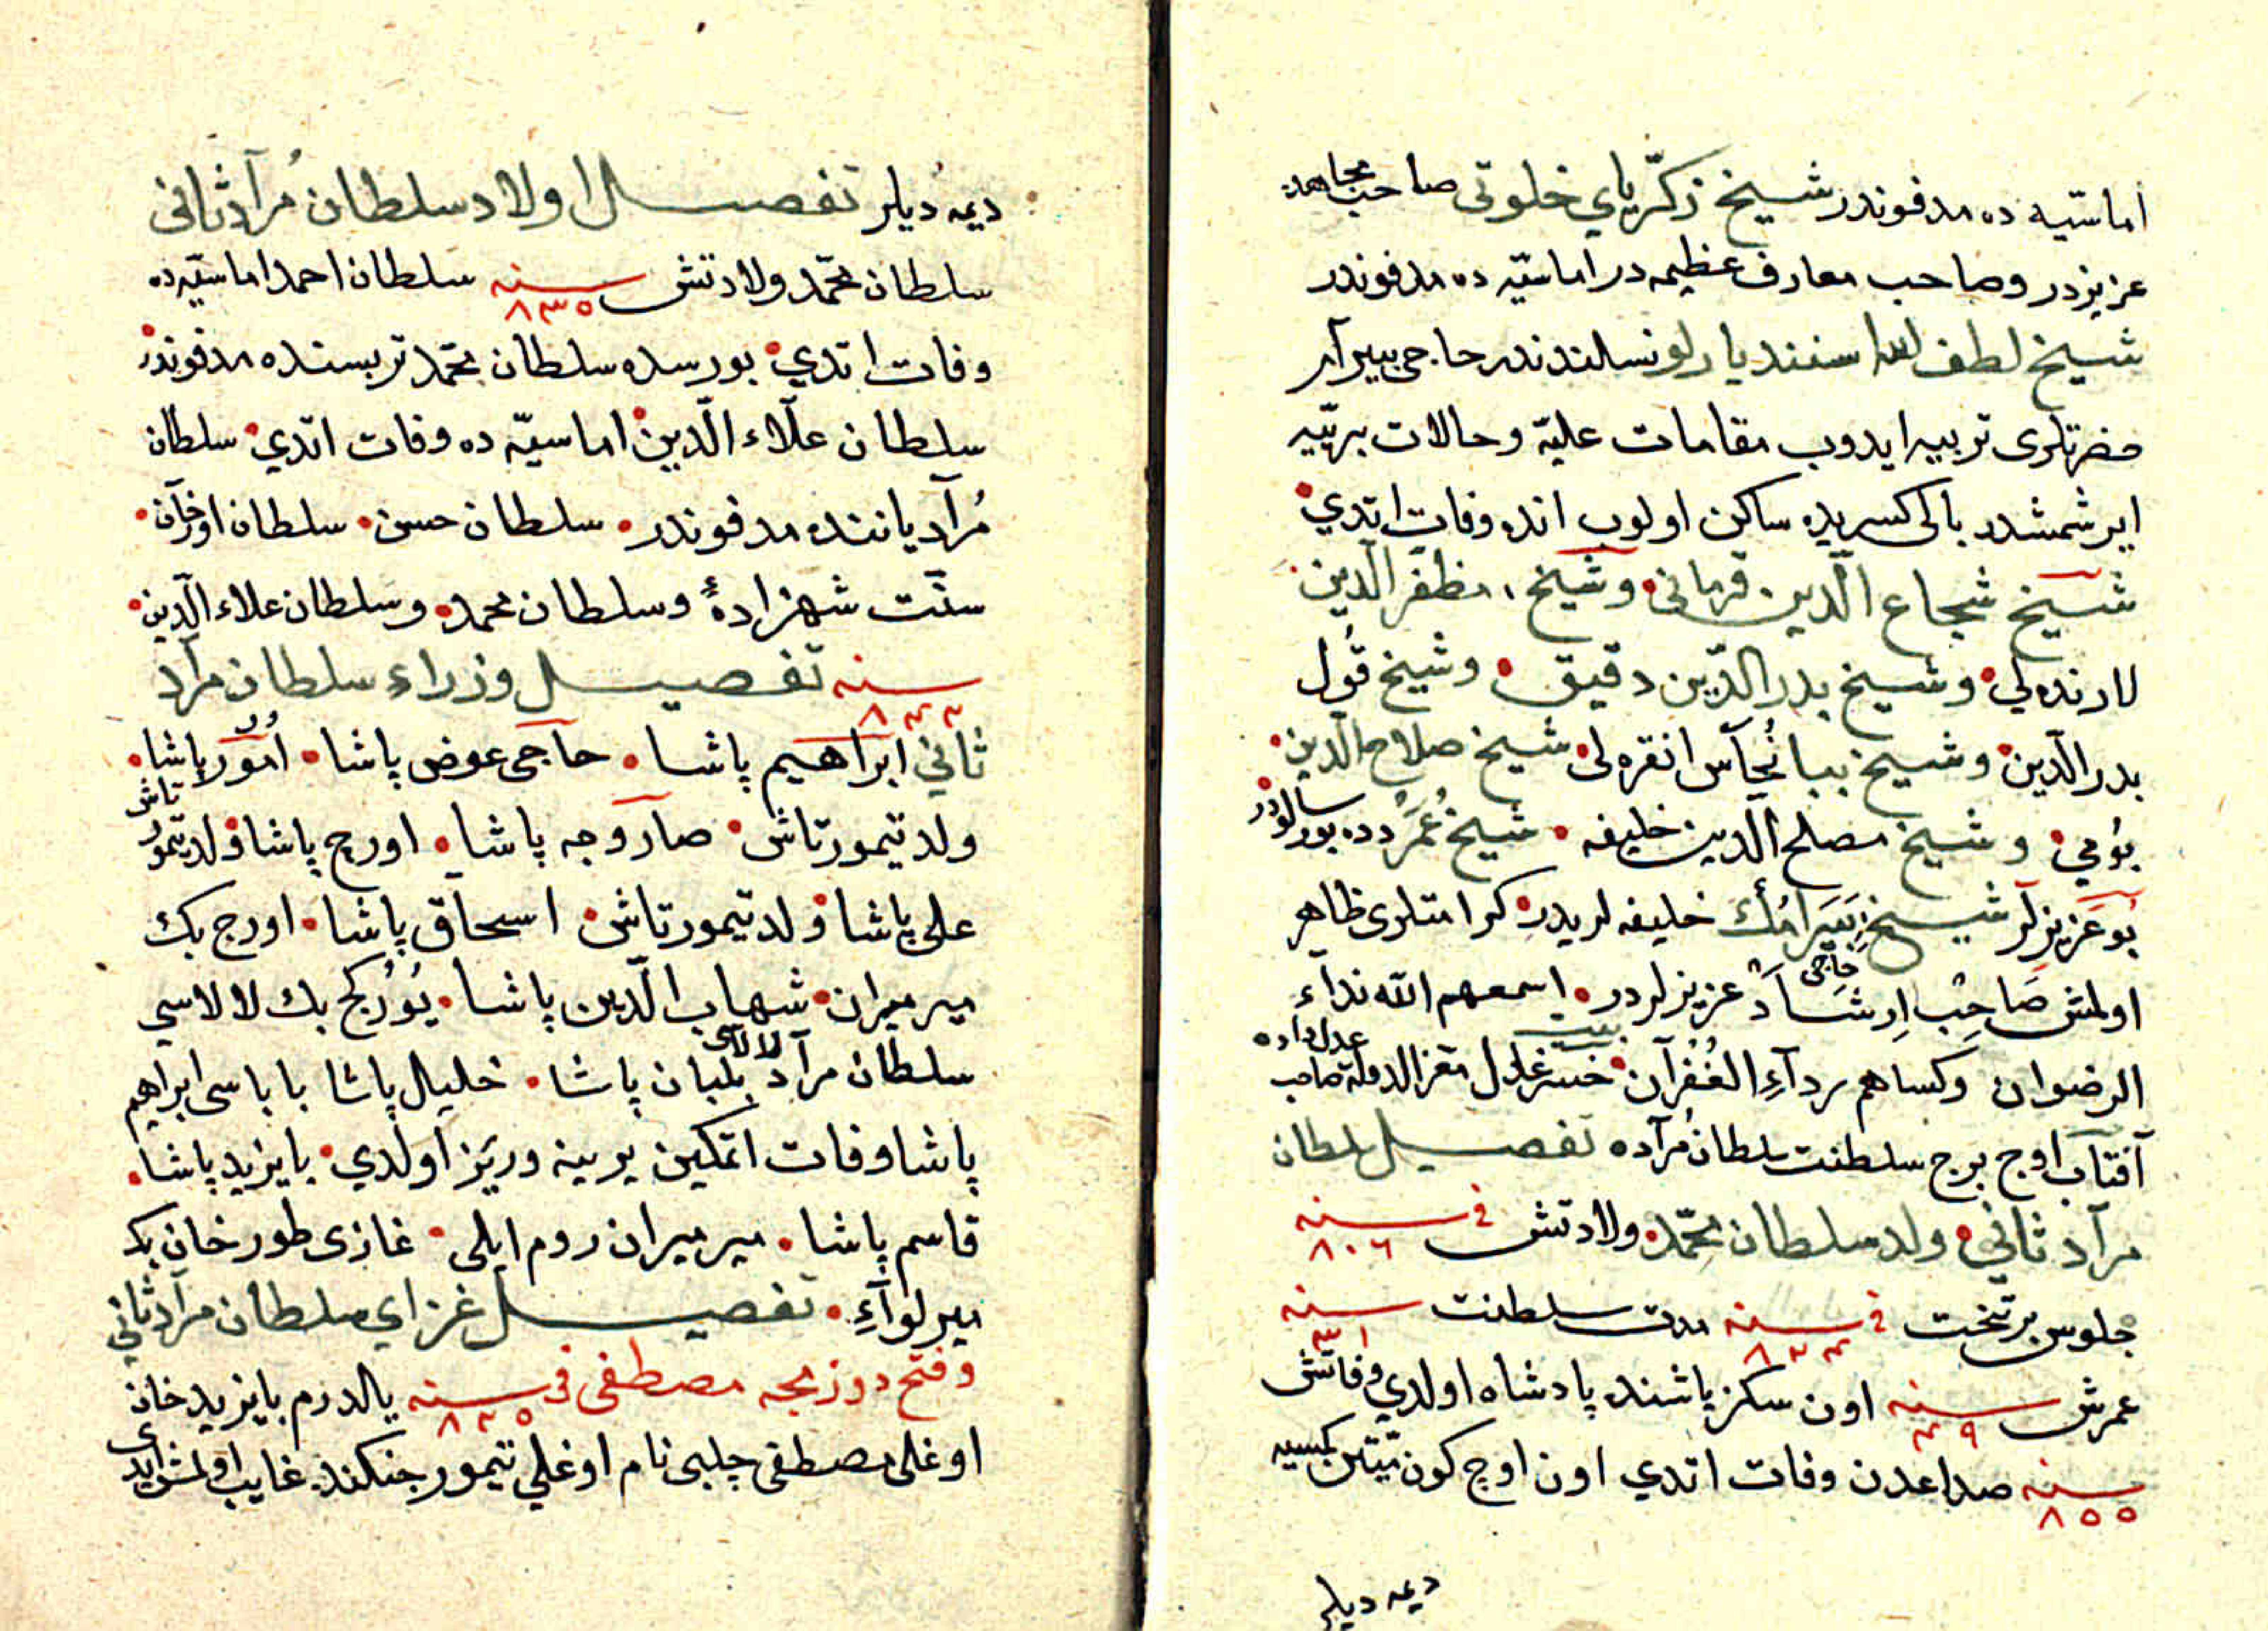 اماسیه ده مدفوندر شیخ زکریای خلوتی صاحب مجاهده
عزیزدر وصاحب معارف عظیمه در اماسیّه ده مدفوندر
شیخ لطف الله اسفندیارلو نسلندندر حاجی بیرام
حضرتلری تربیه ایدوب مقامات علیّه وحالات بریّیه
ایرشمشدر بالی کسریده ساکن اولوب انده وفات اتدي
شیخ شجاع الدّین قرمانی وشیخ مظفر الدّین
لارنده لي وشیخ بدر الدّین دقیق وشیخ قُول
بدر الدّین وشیخ ببا نُحاّس انقره لی شیخ صلاح الدّین
بُولي وشیخ مصلح الدّین خلیفه شیخ عُمَر دده بورسالودر
بُو عَزیزلر شیخ حاجی بَیرامُڭ خلیفه لریدر کرامتلری ظاهر
اولمش صَاحِب اِرشَاد عزیزلردر اسمعهم الله نداء
الرضوان وکساهم رداءِ الغُفرآن بیت خسرو عادل مقز الدوله صاحب عدل وداده
آفتاب اوج برج سلطنت سلطان مُرآده تفصیل سلطان
مرآد ثاني ولد سلطان محمّد ولادتش في سنه ٨٠٦
جلوس بر تخت في سنه ٨٢٤ مدت سلطنت سنه ٣١
عمرش سنه ٤٩ اون سکز یاشنده پادشاه اولدي وفاتش
سنه ٨٥٥ صداعدن وفات اتدي اون اوچ کون میّتن کمسیه
دیمه دیلر
دیمه دیلر تفصیل اولاد سلطان مُرآد ثانی
سلطان محمّد ولادتش سنه ٨٣٥ سلطان احمد اماسیّه ده
وفات اتدي بورسده سلطان محمّد تربسنده مدفوندر
سلطان علاء الدّین اماسیّه ده وفات اتّدي سلطان
مُرآد یاننده مدفوندر سلطان حسن سلطان اورخان
سنّت شهزادهٔ وسلطان محمد وسلطان علاء الدّین
سنه ٨٤٢ تفصیل وزراء سلطان مرآد
ثاني ابراهیم پاشا حاجی عوض پاشا اُمُور پاشا
ولد تیمورتاش صاروجه پاشا اورج پاشا ولد تیمورتاش
علی پاشا ولد تیمورتاش اسحاق پاشا اورج بك
میر میران شهاب الدّین پاشا یُورکج بك لالاسي
سلطان مرآد لالاسی بلبان پاشا خلیل پاشا باباسی ابراهیم
پاشا وفات اتمکین یرینه وزیر اولدي بایزید پاشا
قاسم پاشا میر میران روم ایلی غازی طورخان بك
میر لوآءِ تفصیل غزاي سلطان مرآد ثاني
وفتح دوزمجه مصطفی فی سنه ٨٢٥ یالدرم بایزید خان
اوغلی مصطفی چلبی نام اوغلي تیمور جنکنده غایب اولمش ایدی